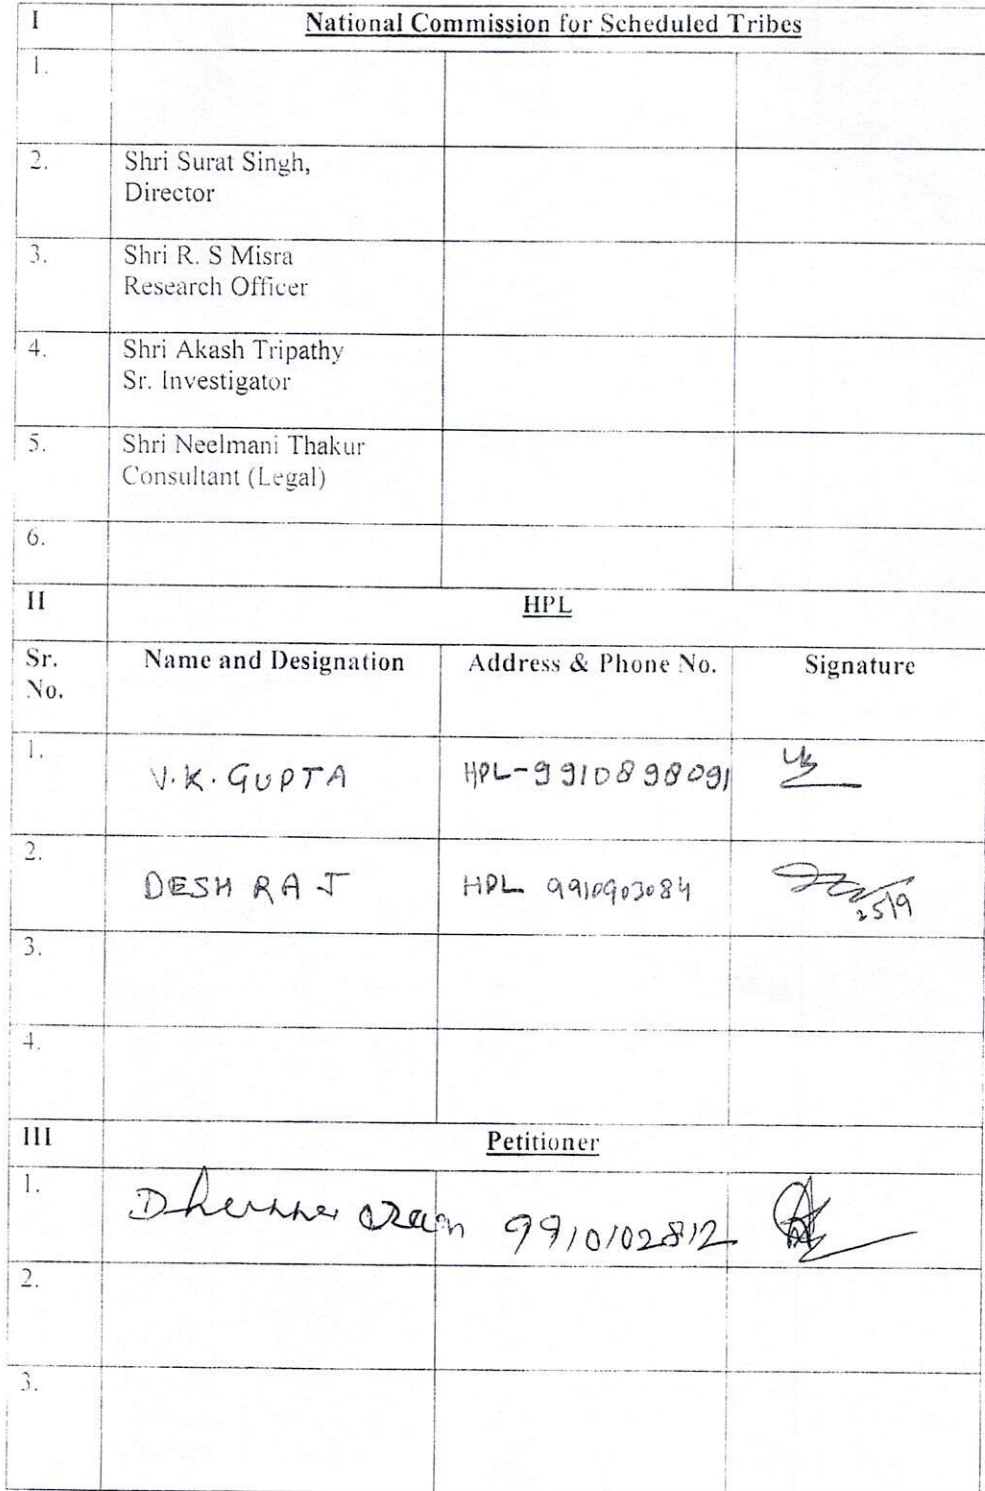 I National Commission for Scheduled Tribes
1.
2. Shri Surat Singh,
Director
3. Shri R. S Misra
Research Officer
4. Shri Akash Tripathy
Sr. Investigator
5. Shri Neelmani Thakur
Consultant (Legal)
6.
II HPL
Sr. Name and Designation Address & Phone No. Signature
No.
1. V.K. GUPTA HPL-9910898091
2. DESH RAJ HPL 9910903084
25/9
3.
4.
III Petitioner
1. 9910102812
2.
3.